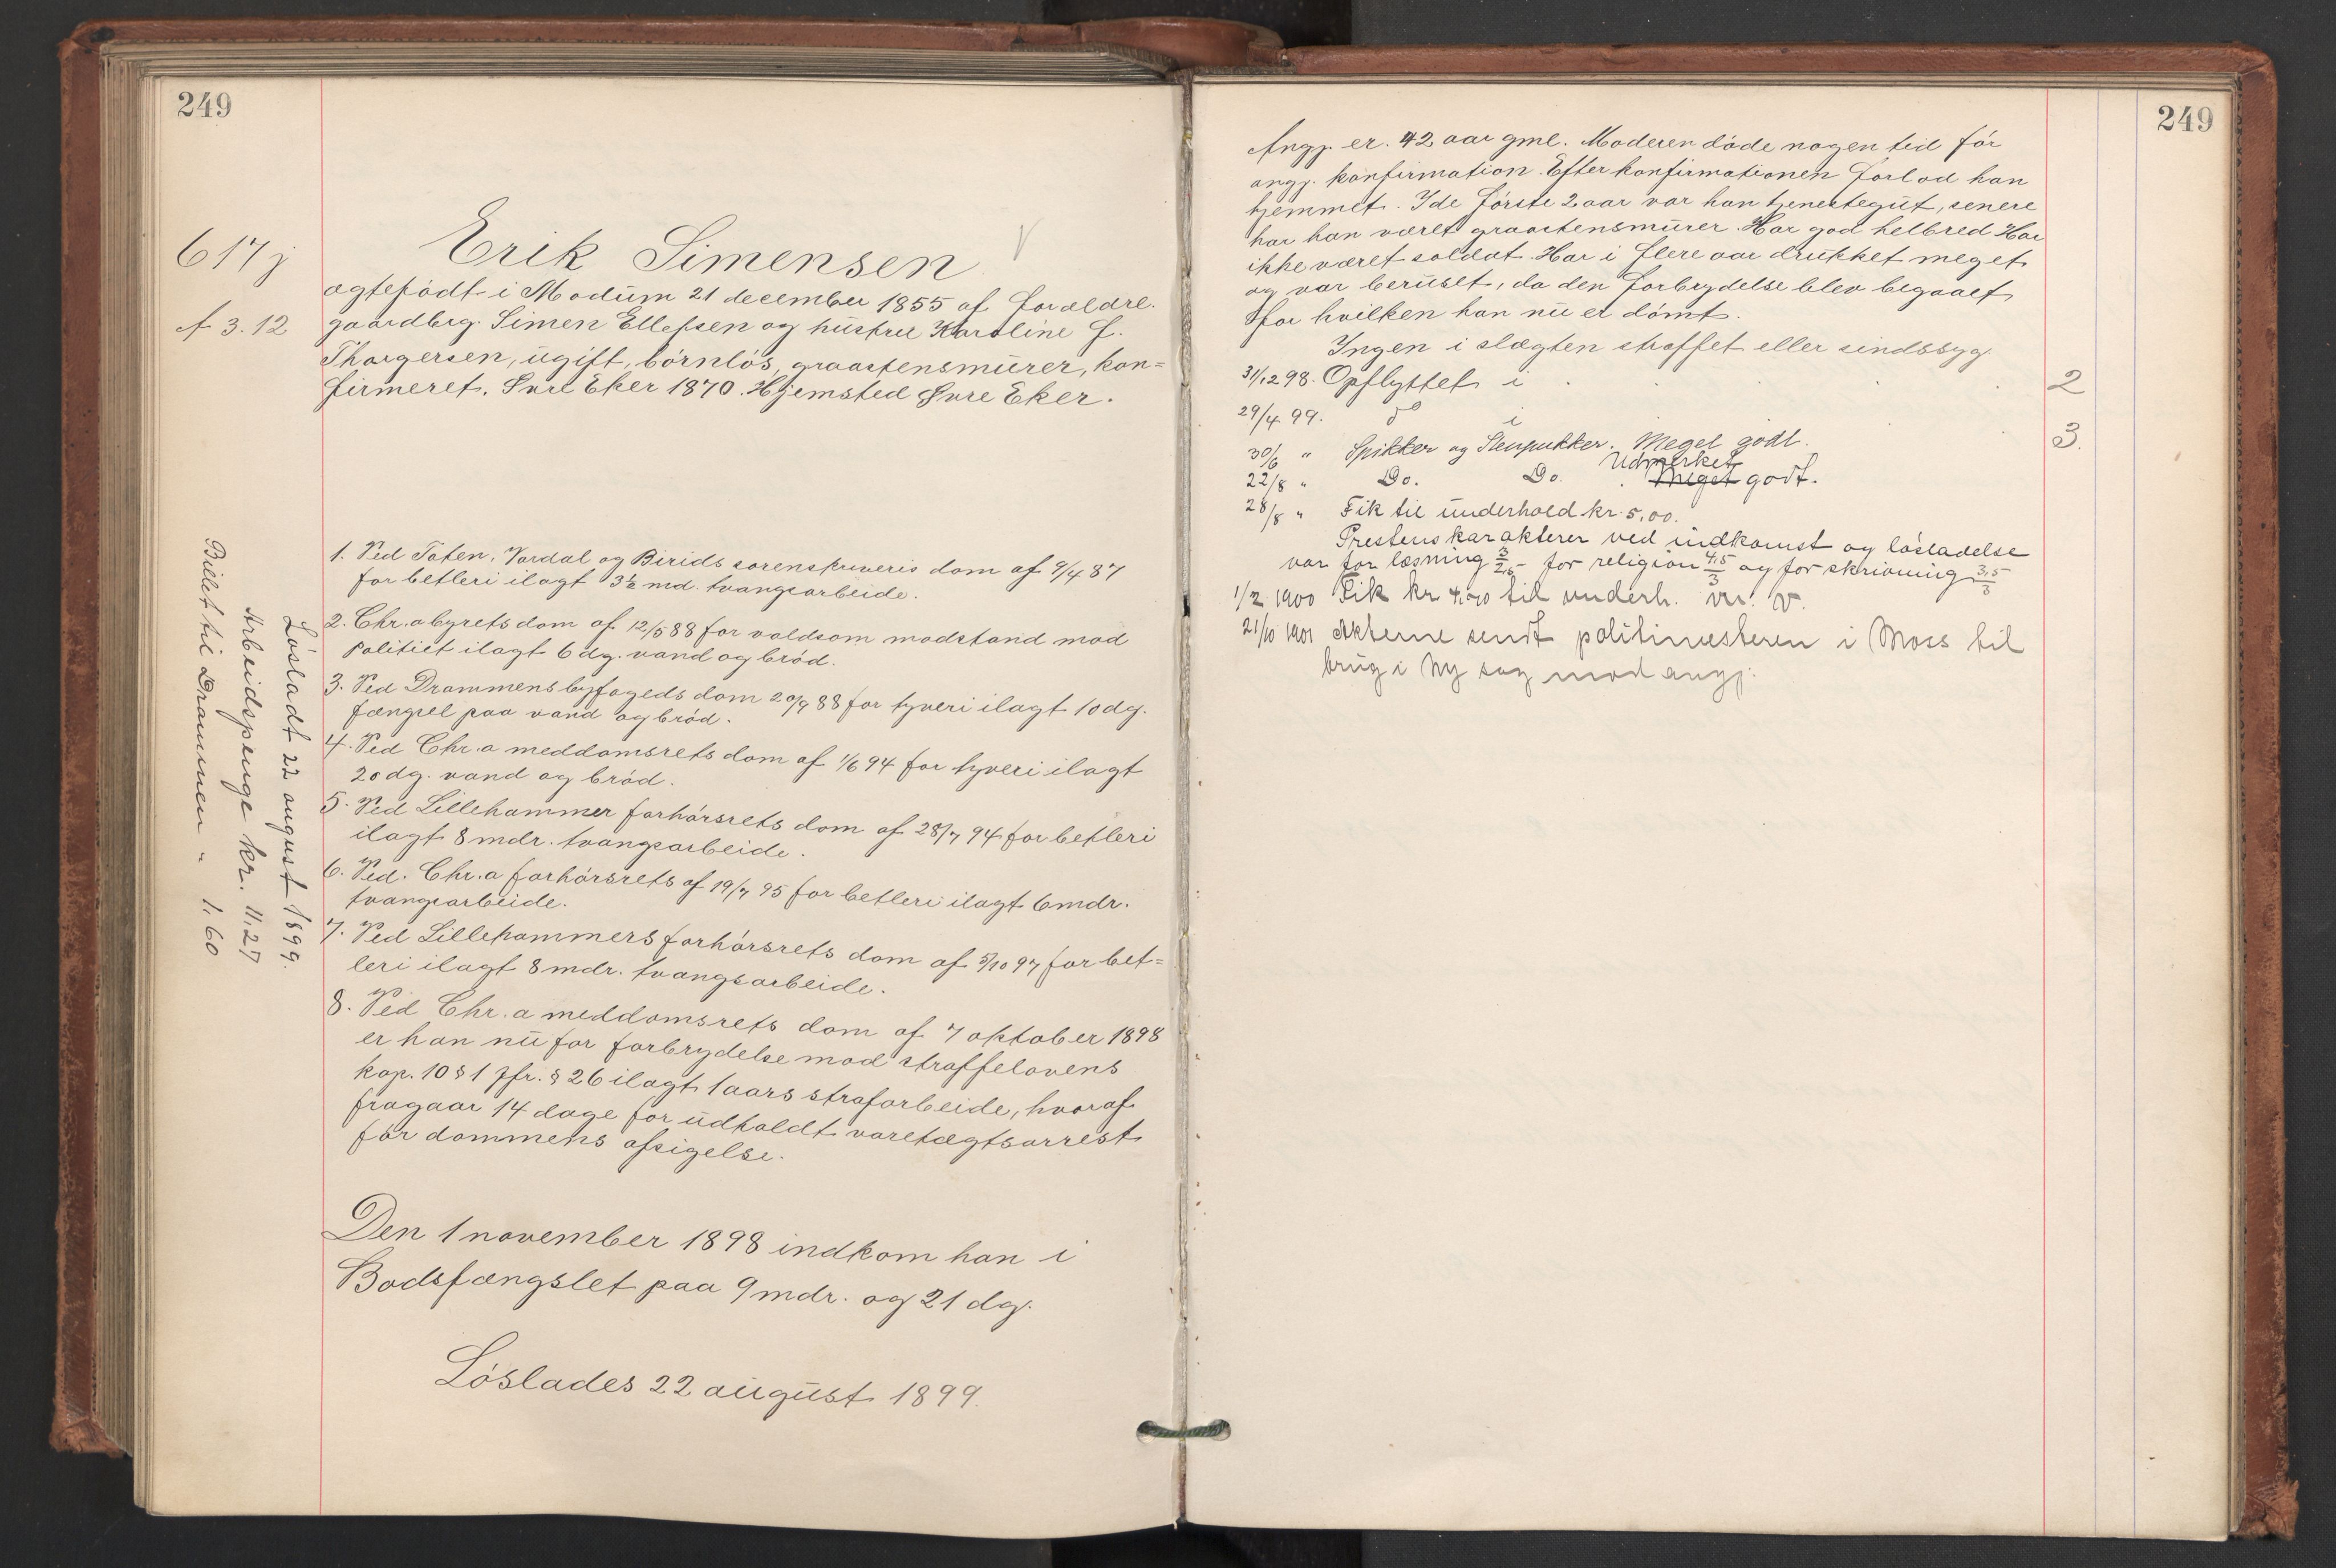 249
617j
f 3.12
Erik Simensen V
ægtefødt i Modum 21 december 1855 af foræeldre
gaardbrg. Simen Ellefsen og hustru Karoline f.
Thorgersen, ugift, børnløs, graastensmurer, kon=
firmeret. Øvre Eker 1870. Hjemsted Øvre Eker.
1. Ved Toten, Vardal og Birids sorenskriveris dom af 9/4 87
for betleri ilagt 3½ md. tvangsarbeide.
2. Chr.a byrets dom af 12/5 88 for voldsom modstand mod
politiet ilagt 6 dg. vand og brød.
3. Ved Drammens byfogeds dom 20/9 88 for tyveri ilagt 10 dg.
fængsel paa vand og brød.
4. Ved Chr.a meddomsrets dom af 1/6 94 for tyveri ilagt
20 dg. vand og brød.
5. Ved Lillehammer forhørsrets dom af 28/7 94 for betleri
ilagt 8 mdr. tvangsarbeide.
6. Ved. Chr.a forhørsrets af 19/7 95 for betleri ilagt 6 mdr.
tvangsarbeide.
7. Ved Lillehammers forhørsrets dom af 5/10 97 for bet=
leri ilagt 8 mdr. tvangsarbeide.
8. Ved Chr.a meddomsrets dom af 7 oktober 1898
er han nu for forbrydelse mod straffelovens
kap. 10 § 1 jfr. § 26 ilagt 1 aars strafarbeide, hvoraf
fragaar 14 dage for udholdt varetægtsarrest
før dommens afsigelse.
Den 1 november 1898 indkom han i
Bodsfængslet paa 9 mdr. og 21 dg.
Løslades 22 august 1899.
Løsladt 22 august 1899.
Arbeidspenge kr. 11,27
Billet til Drammen " 1,60
249
Angj. er. 42 aar gml. Moderen døde nogen tid før
angj. konfirmation. Efter konfirmationen forlod han
hjemmet. I de første 2 aar var han tjenestegut, senere
har han været graastensmurer. Har god helbred Har
ikke været soldat. Har i flere aar drukket meget
og var beruset, da den forbrydelse blev begaaet
for hvilken han nu er dømt.
Ingen i slægten straffet eller sindssyg.
31/12 98. Opflyttet i 2
29/4 99. do i 3.
30/6 " Spikker og Stenpukker. Meget godt.
Udmerket
22/8 " Do. Do. Meget godt.
28/8 " Fik til underhold kr. 5,00.
Prestens karakterer ved indkomst og løsladelse
var for læsning 3/2,5 for religion 4,5/3 og for skrivning 3,5/3
1/2 1900 Fik kr 4,00 til underh.
21/10 1901 Akterne sendt politimesteren i Moss til
brug i ny sag mod angj.